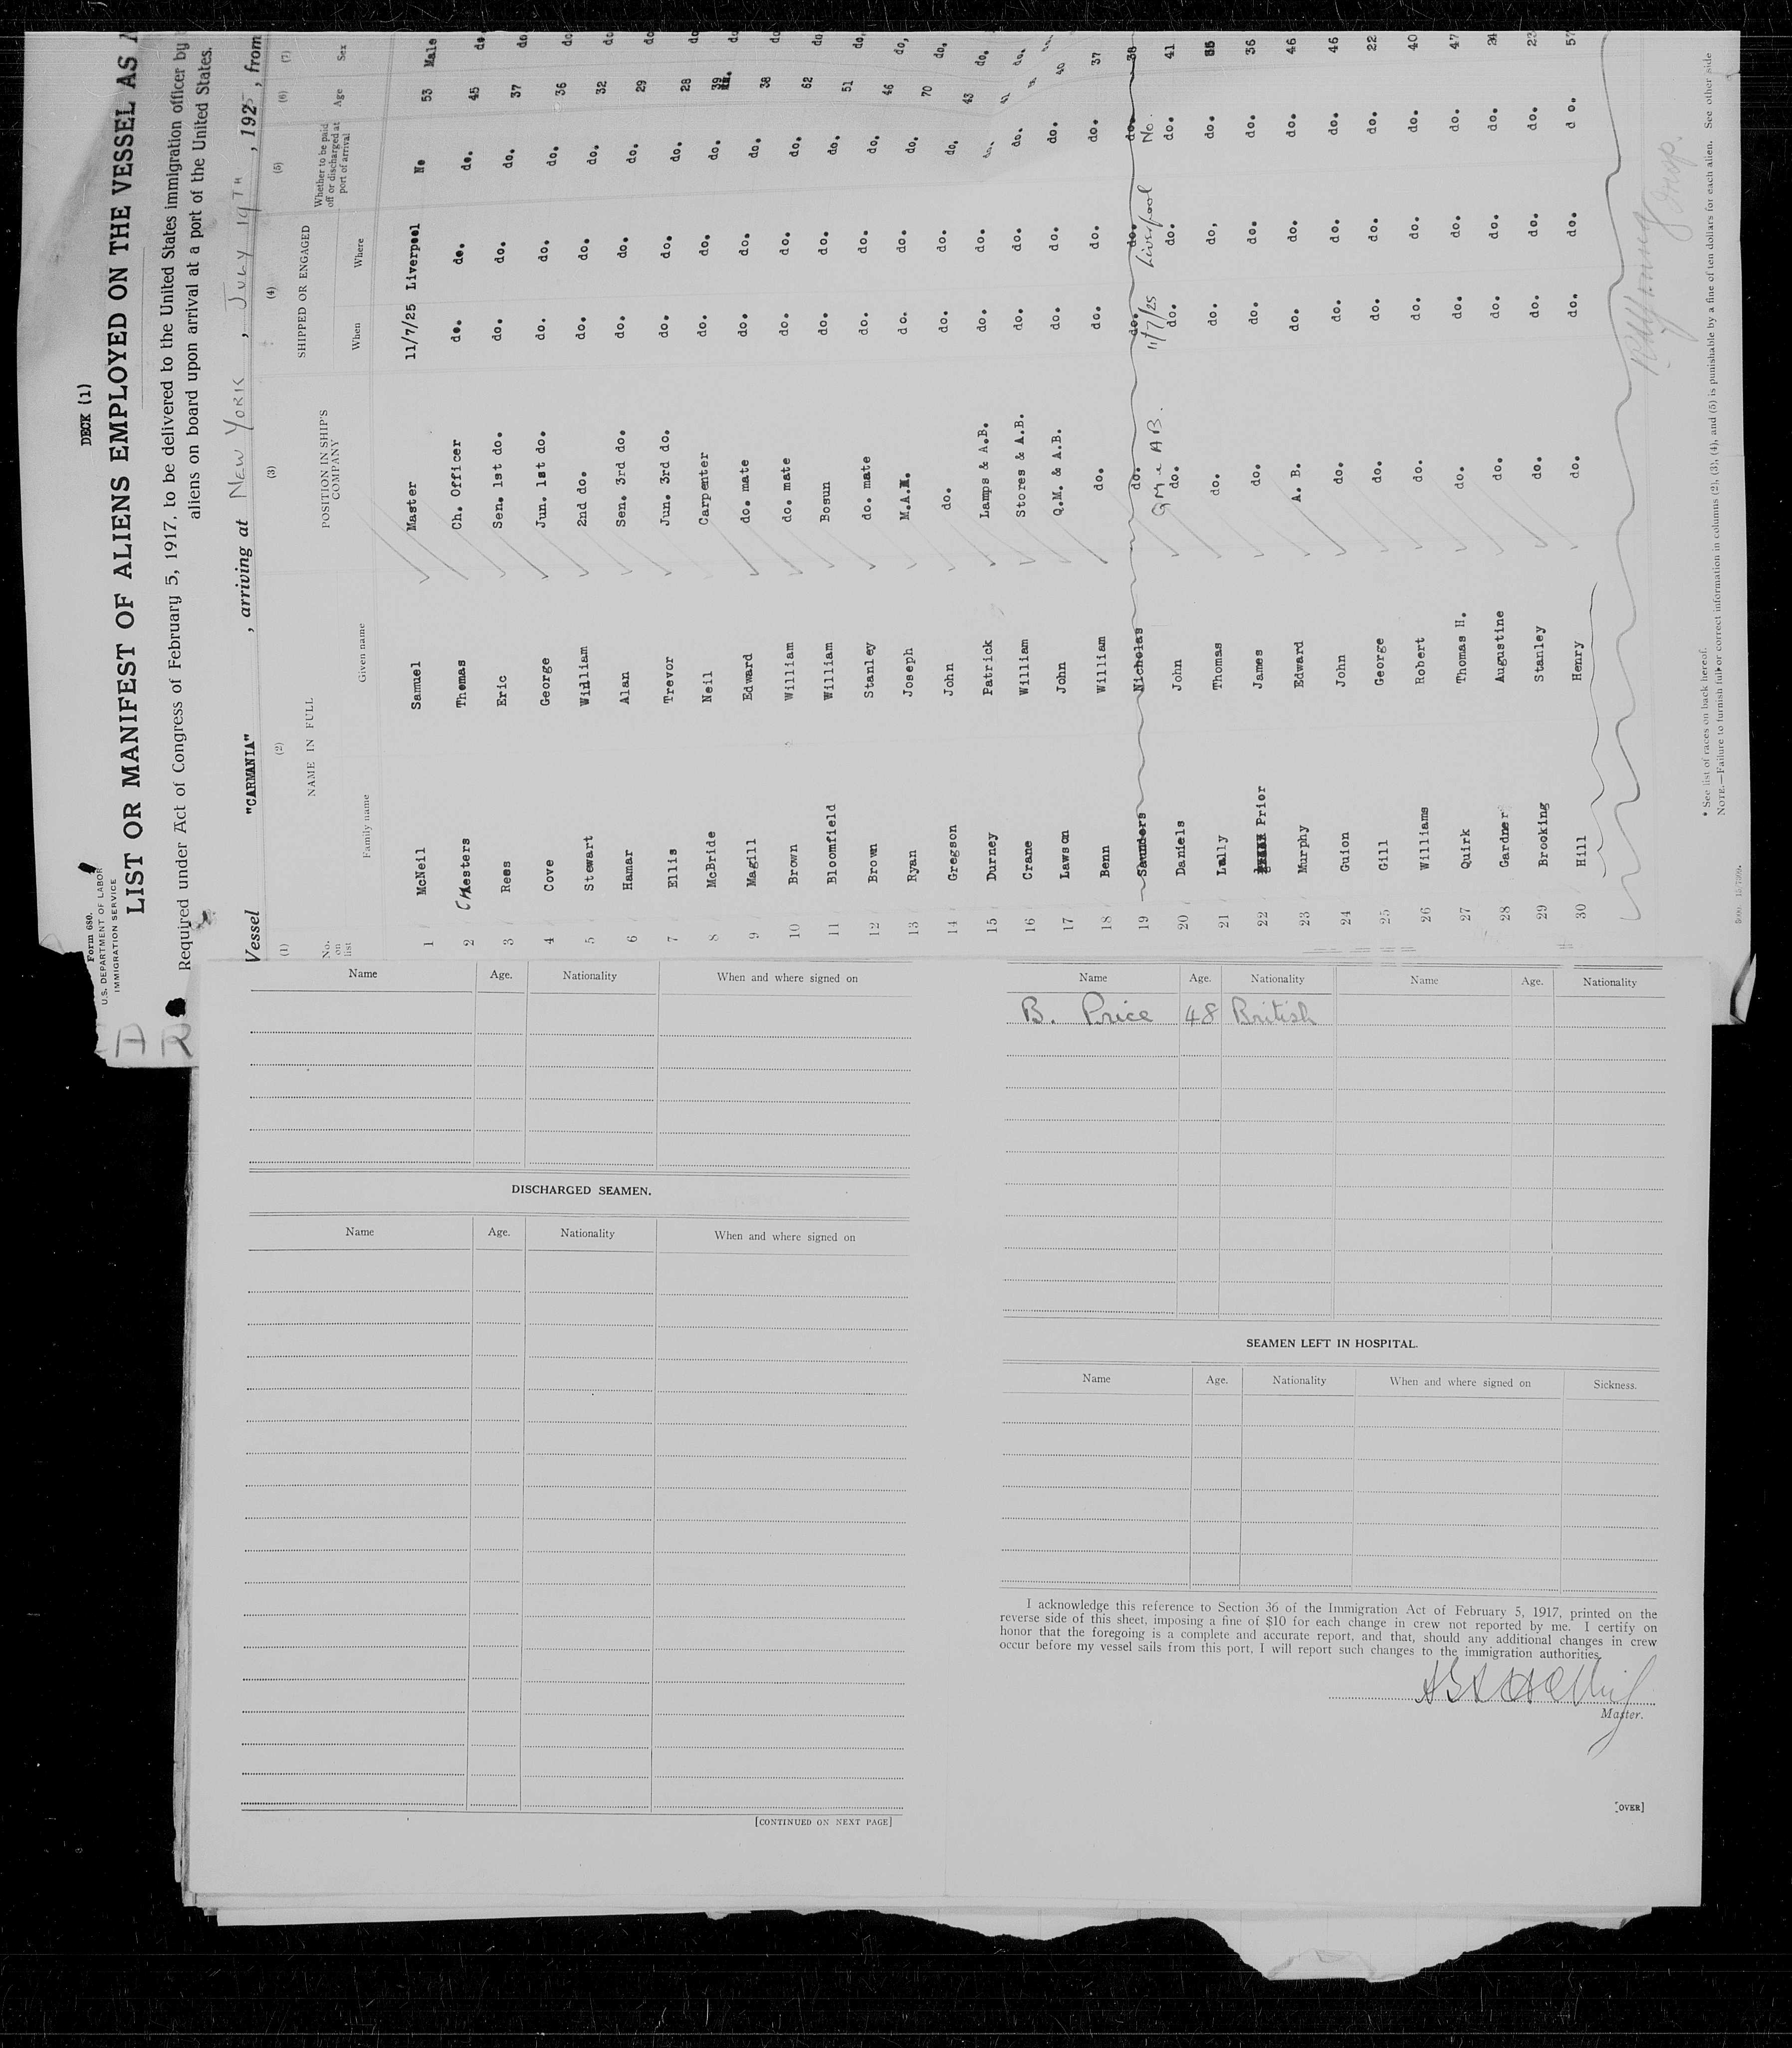 DECK (1)
Form 680.
U.S. DEPARTMENT OF LABOR
IMMIGRATION SERVICE
LIST OR MANIFEST OF ALIENS EMPLOYED ON THE VESSEL AS
Required under Act of Congress of February 5, 1917, to be delivered to the United States immigration officer by
aliens on board upon arrival at a port of the United States.
Vessel "CARMANIA", arriving at NEW YORK, JULY 19TH, 1925, from
(1) (2) (3) (4) (5) (6) (7)
No. on list NAME IN FULL Family name Given name POSITION IN SHIP'S COMPANY SHIPPED OR ENGAGED When Where Whether to be paid off or discharged at port of arrival Age Sex
1 McNeil Samuel Master 11/7/25 Liverpool No 53 Male
2 Chesters Thomas Ch. Officer do. do. do. 45 do.
3 Rees Eric Sen. 1st do. do. do. do. 37 do
4 Cove George Jun. 1st do. do. do. do. 36 do
5 Stewart William 2nd do. do. do. do. 32 do
6 Hamar Alan Sen. 3rd do. do. do. do. 29 do
7 Ellis Trevor Jun. 3rd do. do. do. do. 28 do
8 McBride Neil Carpenter do. do. do. 39 do
9 Magill Edward do. mate do. do. do. 38 do
10 Brown William do. mate do. do. do. 62 do,
11 Bloomfield William Bosun do. do. do. 51 do,
12 Brown Stanley do. mate do. do. do. 46 do,
13 Ryan Joseph M.A.A. do. do. do. 70 do.
14 Gregson John do. do. do. do. 43 do.
15 Durney Patrick Lamps & A.B. do. do. do.
16 Crane William Stores & A.B. do. do. do.
17 Lawson John Q.M. & A.B. do. do. do. 40
18 Benn William do. do. do. do. 37
19 Saunders Nicholas do. do. do. do. 38
QM & AB. 11/7/25 Liverpool No.
20 Daniels John do. do. do. do. 41
21 Lally Thomas do. do. do, do. 35
22 Prior James do. do. do. do. 36
23 Murphy Edward A. B. do. do. do. 46
24 Guion John do. do. do. do. 46
25 Gill George do. do. do. do. 22
26 Williams Robert do. do. do. do. 40
27 Quirk Thomas H. do. do. do. do. 47
28 Gardner Augustine do. do. do. do.
29 Brooking Stanley do. do. do. do. 23
30 Hill Henry do. do. do. do. 57
* See list of races on back hereof.
NOTE.—Failure to furnish full or correct information in columns (2), (3), (4), and (5) is punishable by a fine of ten dollars for each alien. See other side
AR
Name Age. Nationality When and where signed on
DISCHARGED SEAMEN.
Name Age. Nationality When and where signed on
[CONTINUED ON NEXT PAGE]
Name Age. Nationality Name Age. Nationality
B. Price 48 British
SEAMEN LEFT IN HOSPITAL.
Name Age. Nationality When and where signed on Sickness.
I acknowledge this reference to Section 36 of the Immigration Act of February 5, 1917, printed on the
reverse side of this sheet, imposing a fine of $10 for each change in crew not reported by me. I certify on
honor that the foregoing is a complete and accurate report, and that, should any additional changes in crew
occur before my vessel sails from this port, I will report such changes to the immigration authorities.
Master.
[OVER]